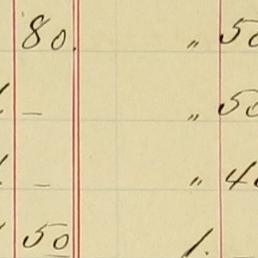 80. " 50
— " 50
— " 4
50 1.